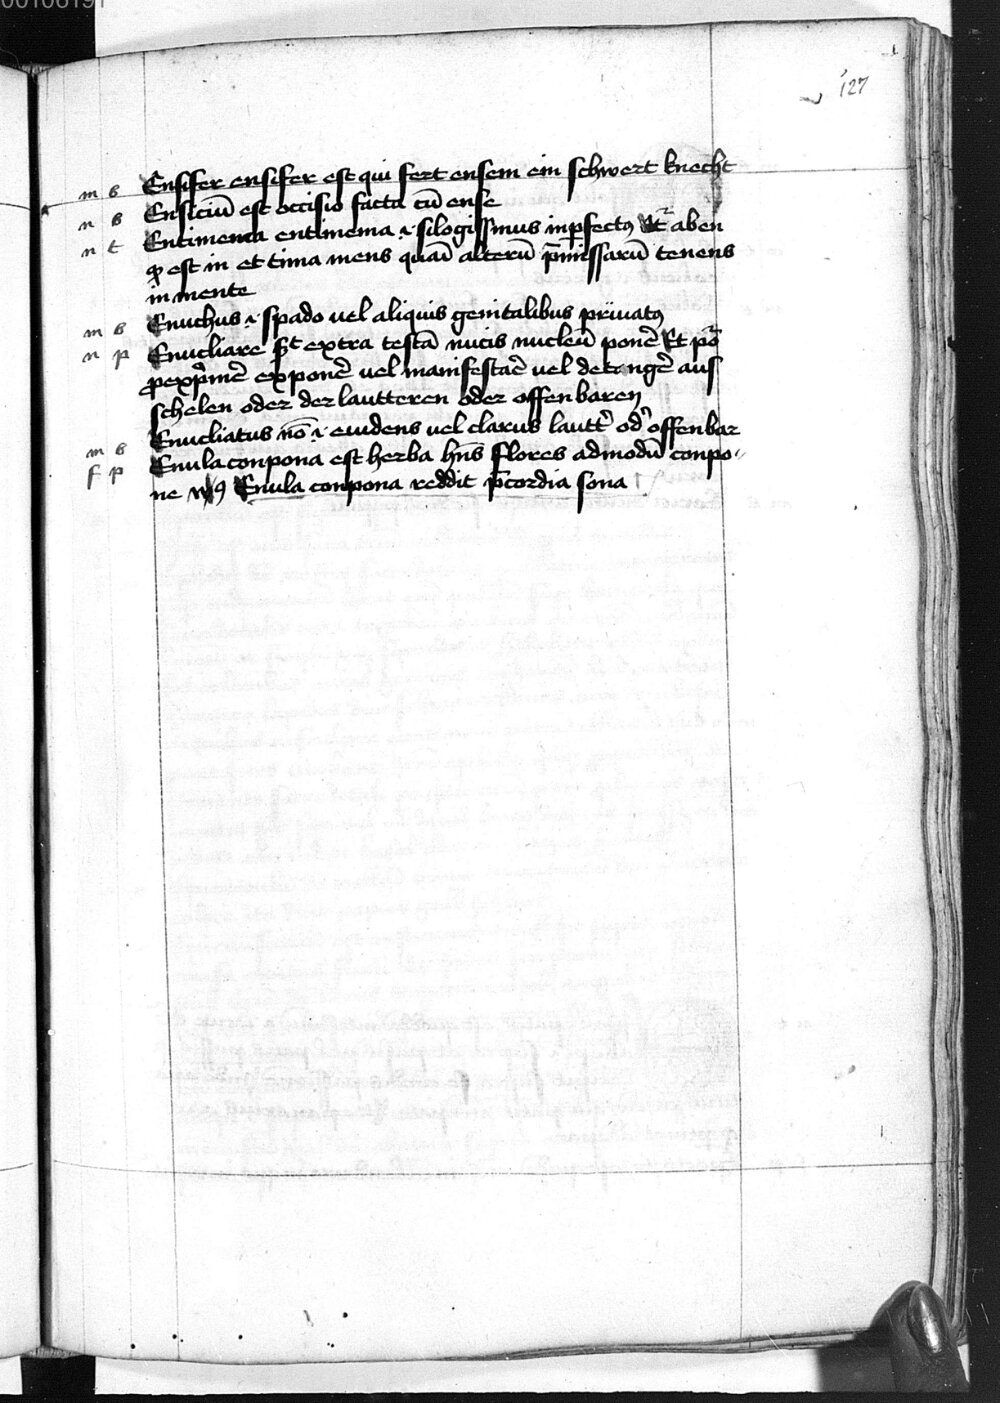 00106191
127
m s Ensifer ensifer est qui fert ensem ein schwert knecht
n s Ensiciũ est occisio facta cũ ense
n t Entimema entimema .i. silogissmus inꝑfectꝯ aben
est in et tima mens quasi alterũ p̃missarũ tenens
in mente
m s Enuchus .i. spado uel aliquis genitalibus priuatꝯ
n p Enucliare extra testã nucis nucleũ ponẽ Et
exponẽ uel manifestaẽ uel detangẽ aus
schelen oder der lautteren oder offenbaren
m s Enucliatus .i. euidens uel clarus lautt̾ od̾ offenbar
f p Enula conpona est herba hñs flores admodũ conpo-
ne Enula conpona reddit p̃cordia sona